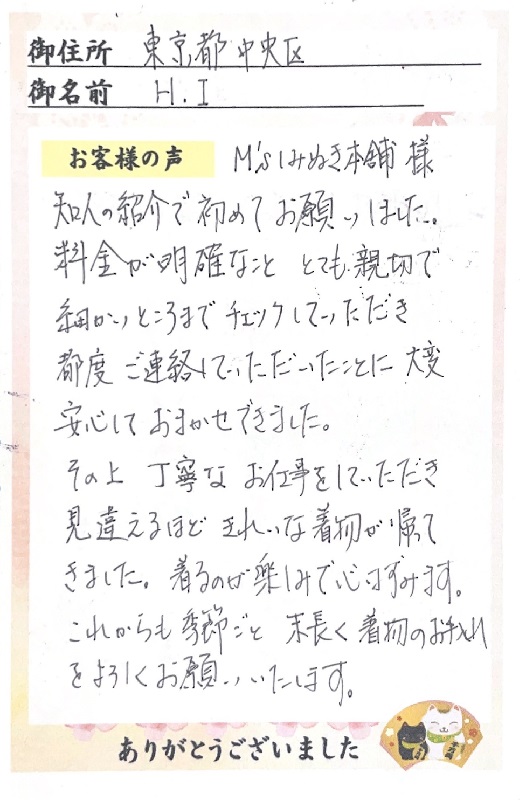 御住所 東京都中央区
御名前 H.I
お客様の声 M'sしみぬき本舗 様
知人の紹介で初めてお願いしました。
料金が明確なこと とても親切で
細かいところまでチェックしていただき
都度ご連絡していただいたことに 大変
安心して おまかせできました。
その上 丁寧な お仕事をしていただき
見違えるほど きれいな着物が帰って
きました。着るのが楽しみで心はずみます。
これからも季節ごと 末長く着物のお手入れ
をよろしくお願いいたします。
ありがとうございました